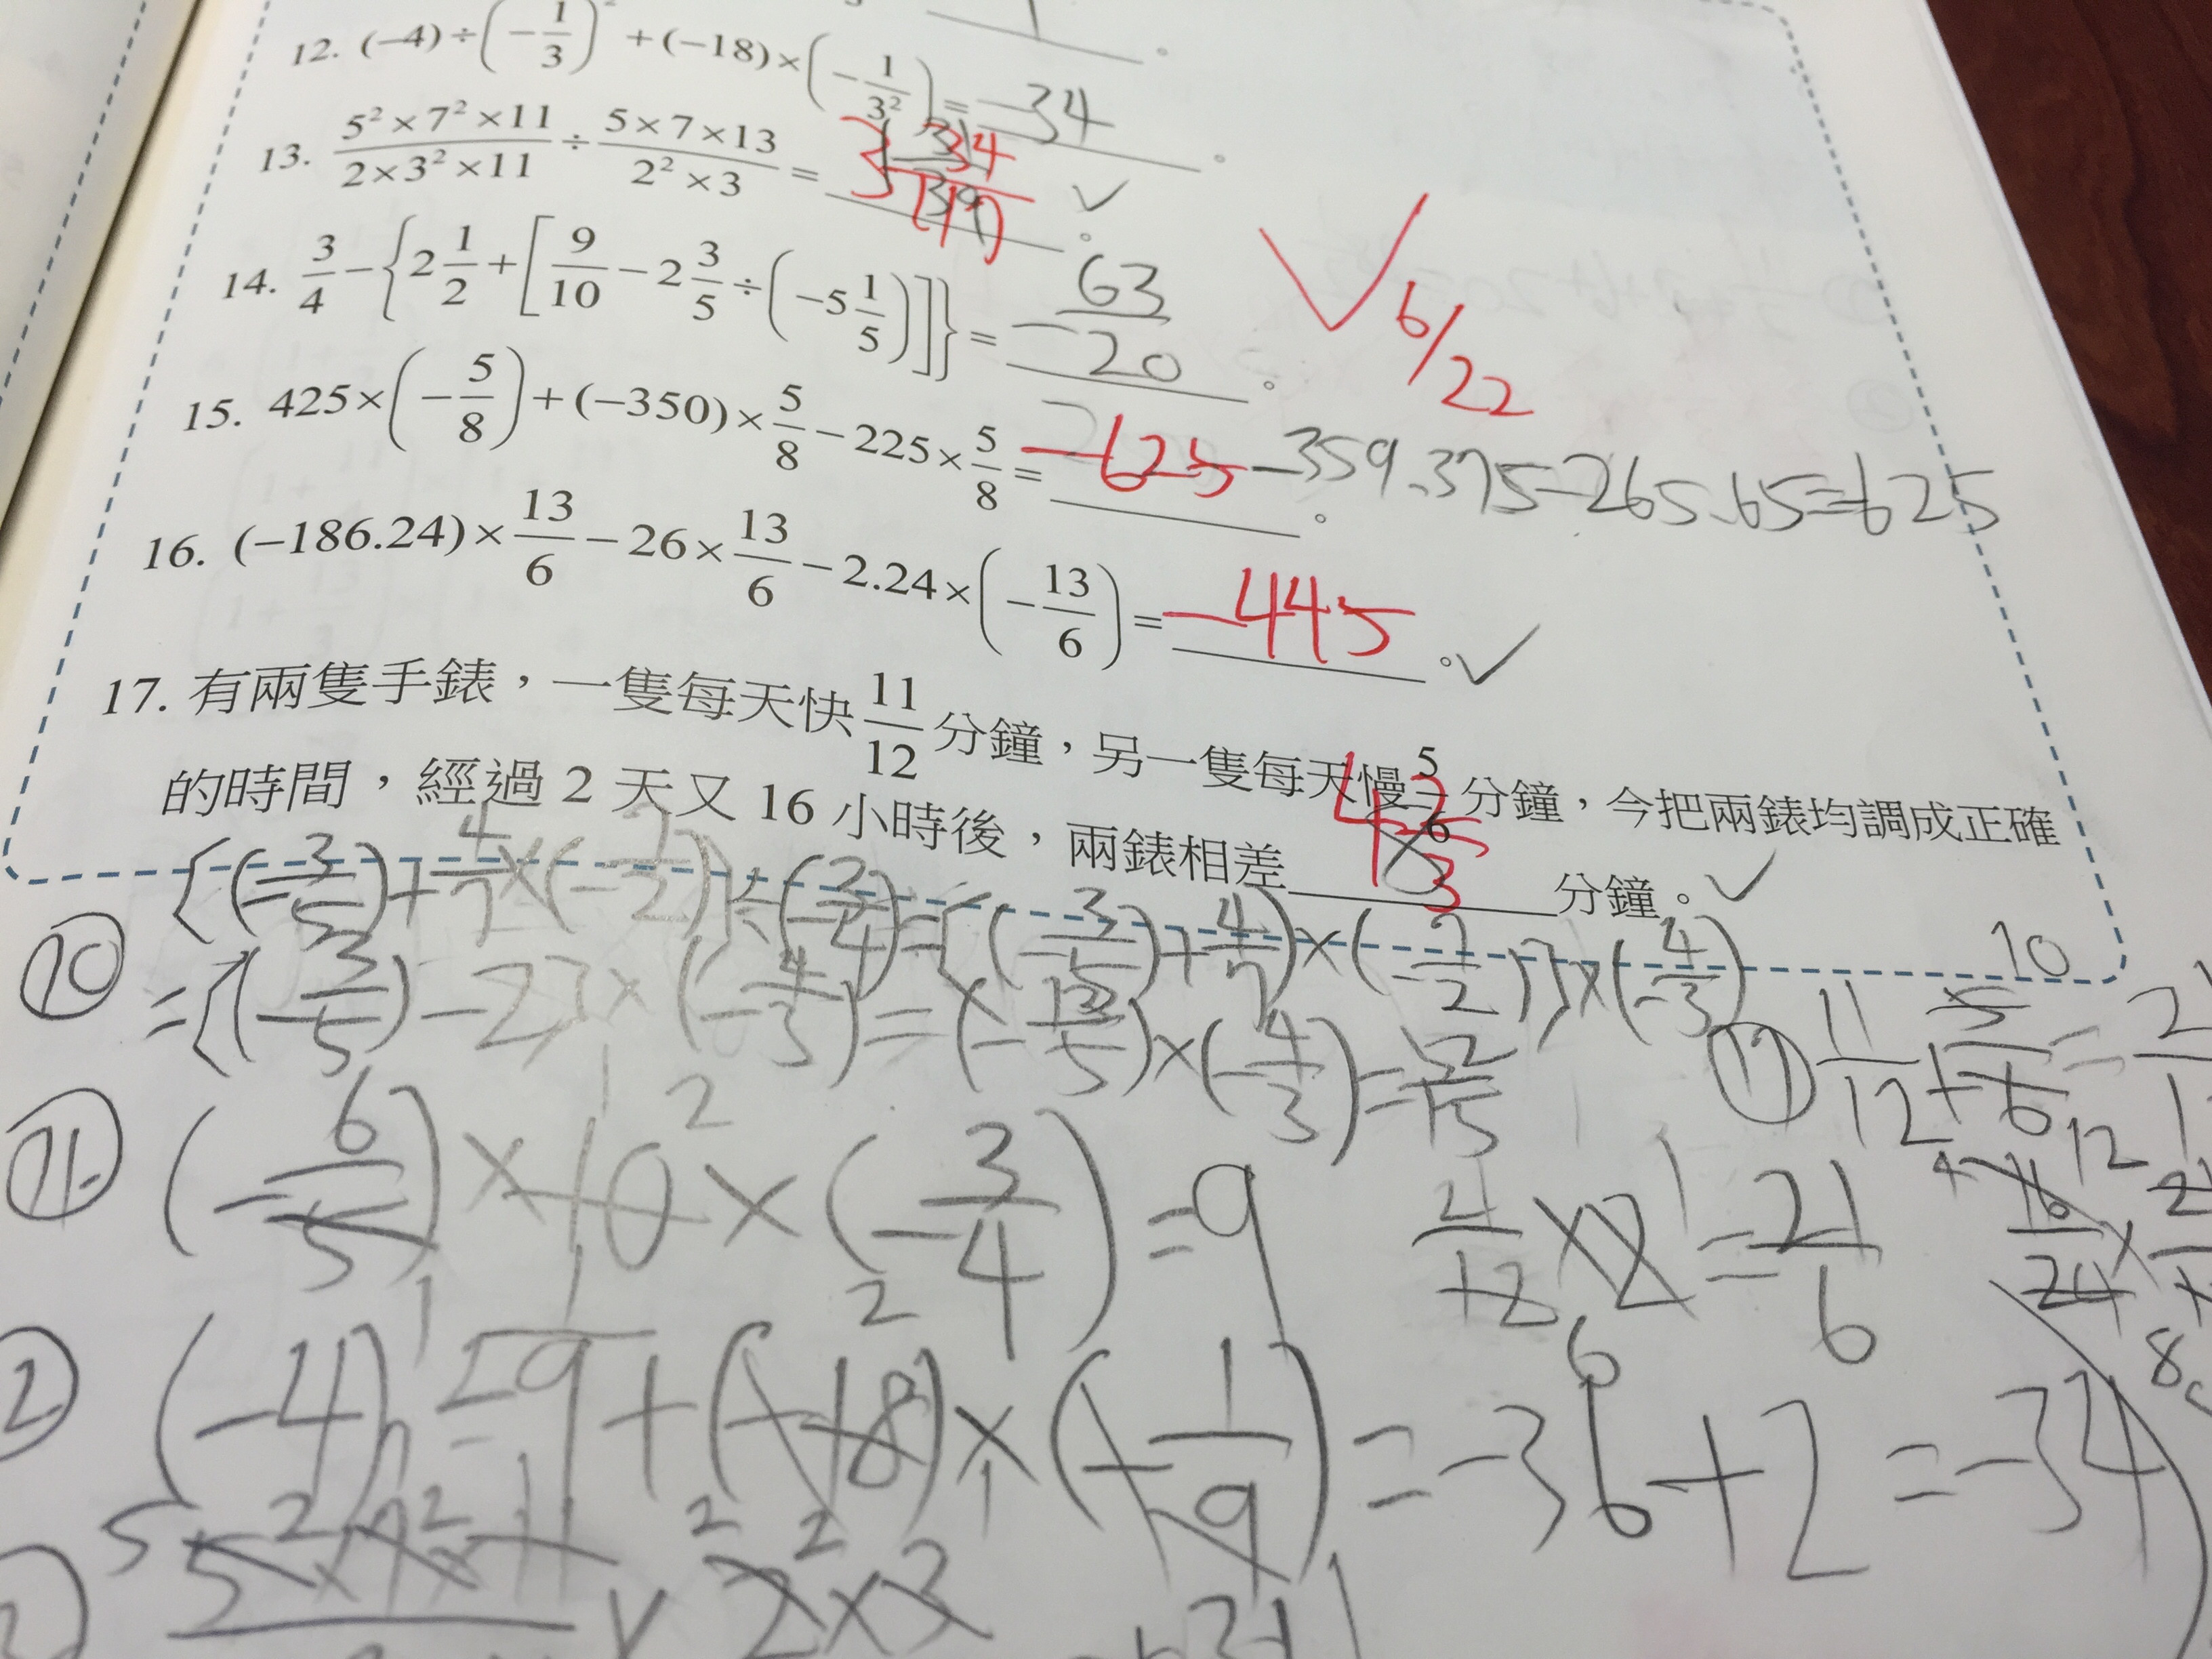 12. (−4)÷(−1/3)²+(−18)×(−1/3²)= −34 。
13. 5²×7²×11/2×3²×11 ÷ 5×7×13/2²×3 = 3 34/117 。✓
14. 3/4−{2 1/2+[9/10−2 3/5÷(−5 1/5)]]}= −63/20 。
✓6/22
15. 425×(−5/8)+(−350)×5/8−225×5/8= −625 。 −359.375−265.65=−625
16. (−186.24)×13/6−26×13/6−2.24×(−13/6)= −445 。✓
17. 有兩隻手錶，一隻每天快11/12分鐘，另一隻每天慢5/6分鐘，今把兩錶均調成正確
的時間，經過 2 天又 16 小時後，兩錶相差 4 2/3 分鐘。✓
⑩ {(−3/5)+4/7×(−7/2)}÷(−3/4)={(−3/5)+4/7)×(−7/2)}×(−4/3)
={(−3/5)−2}×(−4/3)=(−13/5)×(−4/3)=52/15
⑰ 11/12+5/6=
10
12
⑪ (−6/5)×10×(−3/4)=9
21/12×2=21/6
16/24×
(−4)×9+(−18)×(−1/9)=−36+2=−34
5²×7²×11 × 2²×3